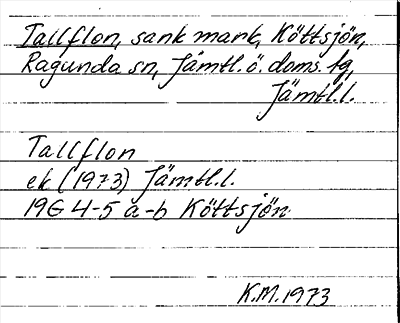 Tallflon, sank mark, Köttsjön,
Ragunda sn, Jämtl. ö. doms. fg,
Jämtl.l.
Tallflon
ek (1973) Jämtl.l.
19G 4-5 a-b Köttsjön
K.M. 1973